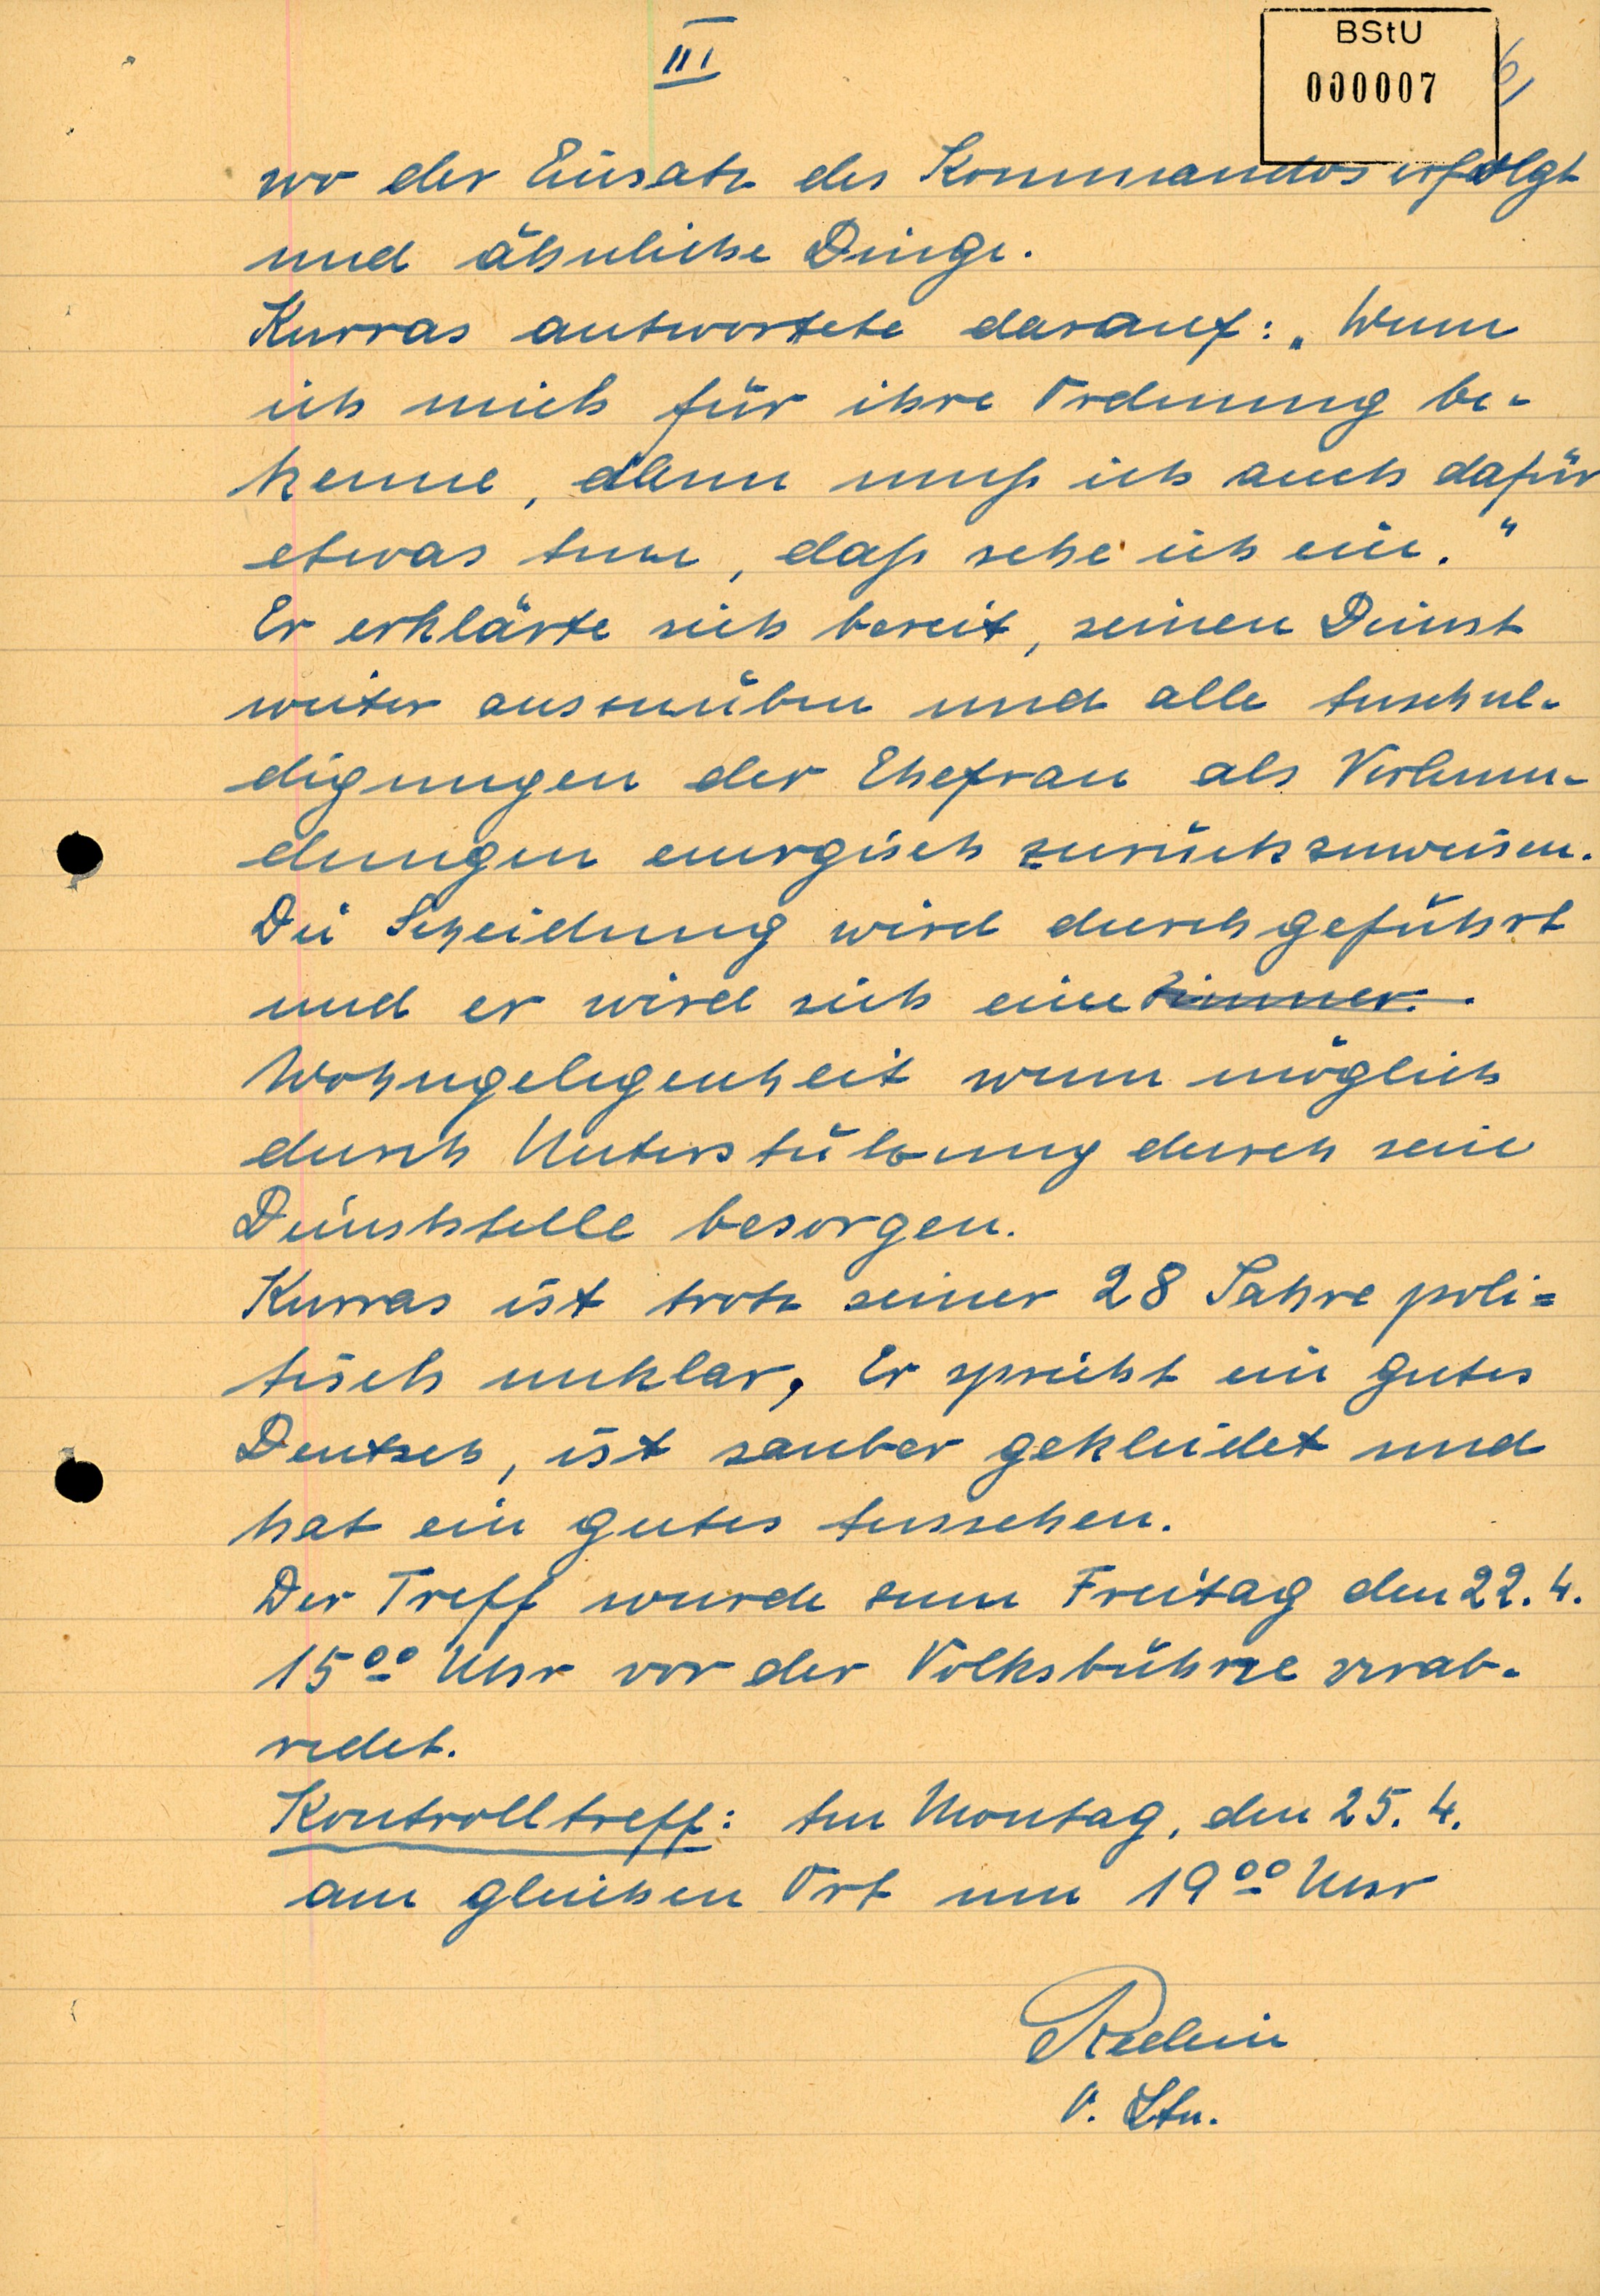 III
BStU
000007
wo der Einsatz des Kommandos erfolgt
und ähnliche Dinge.
Kurras antwortete darauf: „Wenn
ich mich für ihre Ordnung be-
kenne, dann muß ich auch dafür
etwas tun, daß sehe ich ein."
Er erklärte sich bereit, seinen Dienst
weiter auszuüben und alle Anschul-
digungen der Ehefrau als Verleum-
dungen energisch zurückzuweisen.
Die Scheidung wird durchgeführt
und er wird sich eine Zimmer.
Wohngelegenheit wenn möglich
durch Unterstützung durch seine
Dienststelle besorgen.
Kurras ist trotz seiner 28 Jahre poli=
tisch unklar. Er spricht ein gutes
Deutsch, ist sauber gekleidet und
hat ein gutes Aussehen.
Der Treff wurde zum Freitag den 22. 4.
15⁰⁰ Uhr vor der Volksbühne verab-
redet.
Kontrolltreff: Am Montag, den 25. 4.
am gleichen Ort um 19⁰⁰ Uhr
O. Ltn.